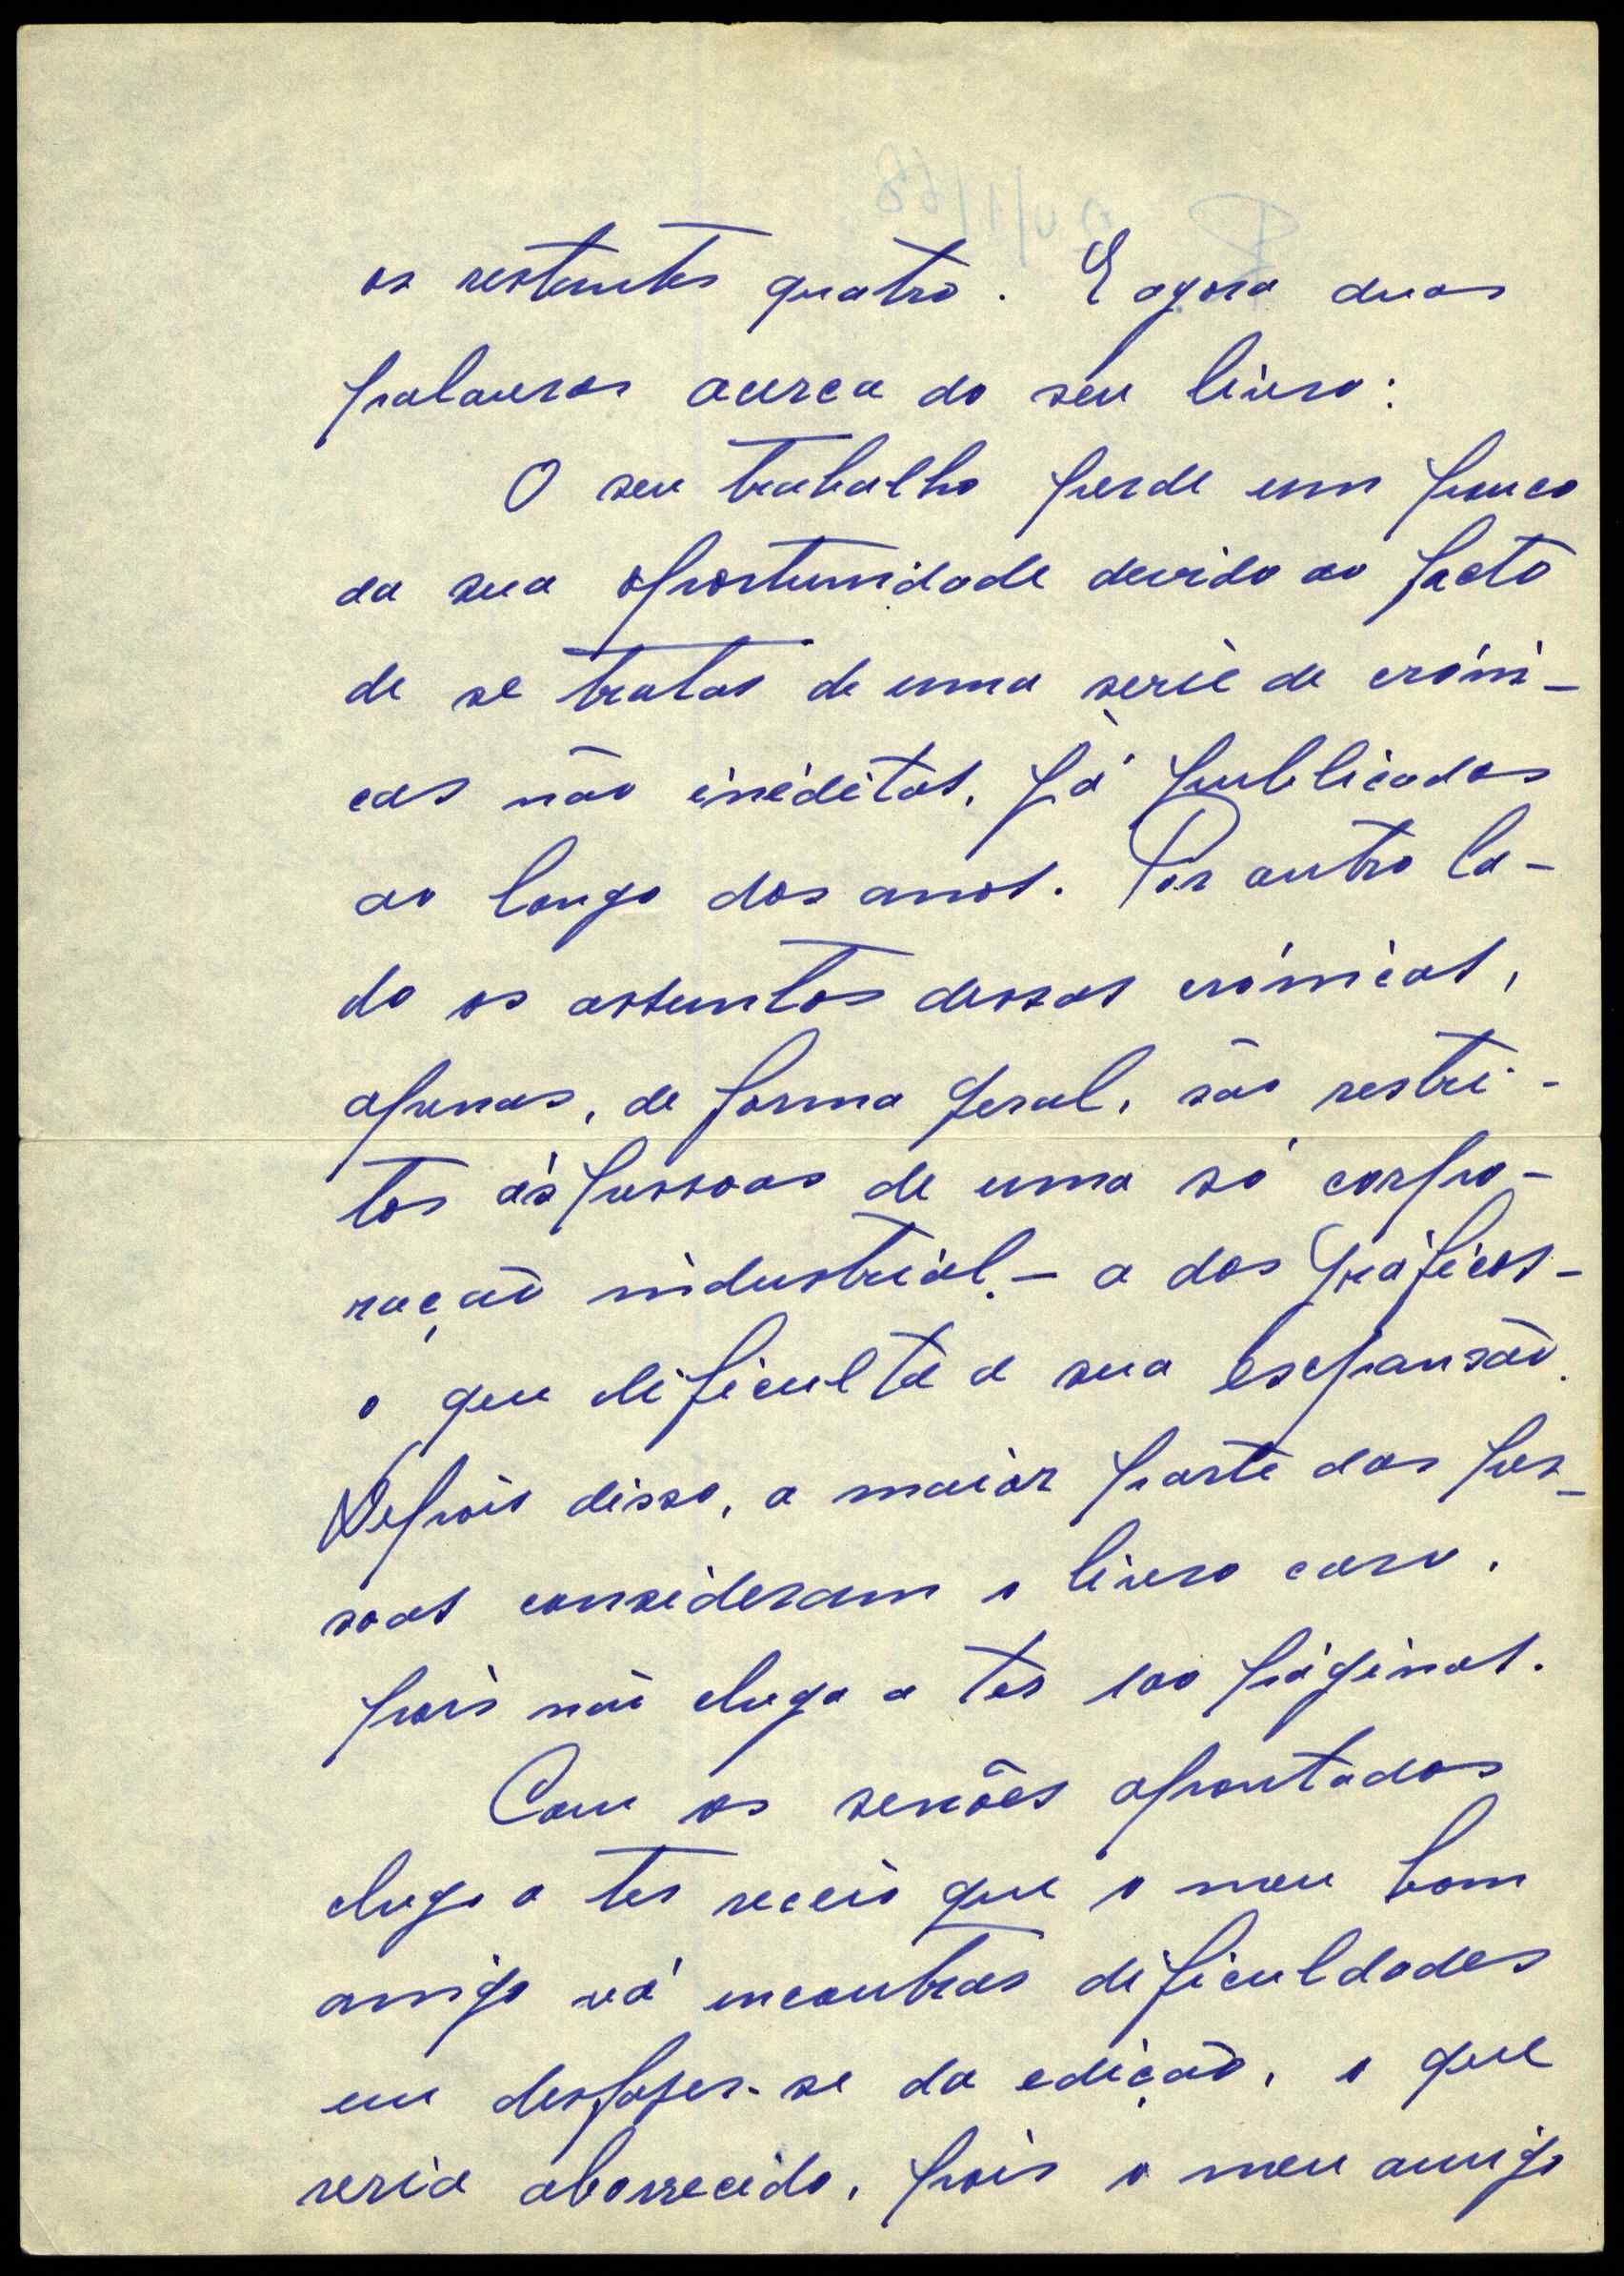 os restantes quatro. E agora duas
palavras acerca do seu livro:
O seu trabalho perde um pouco
da sua oportunidade devido ao facto
de se tratar de uma serie de cróni-
cas não inéditas, já publicadas
ao longo dos anos. Por outro la-
do os assuntos dessas crónicas,
apenas, de forma geral, são restri-
tos ás pessoas de uma só corpo-
ração industrial - a dos gráficos -
o que dificulta a sua expansão.
Depois disso, a maior parte das pes-
soas consideram o livro caro,
pois não chega a ter 100 páginas.
Com os senões apontados
chego a ter receio que o meu bom
amigo vá encontrar dificuldades
em desfazer-se da edição, o que
seria aborrecido, pois o meu amigo